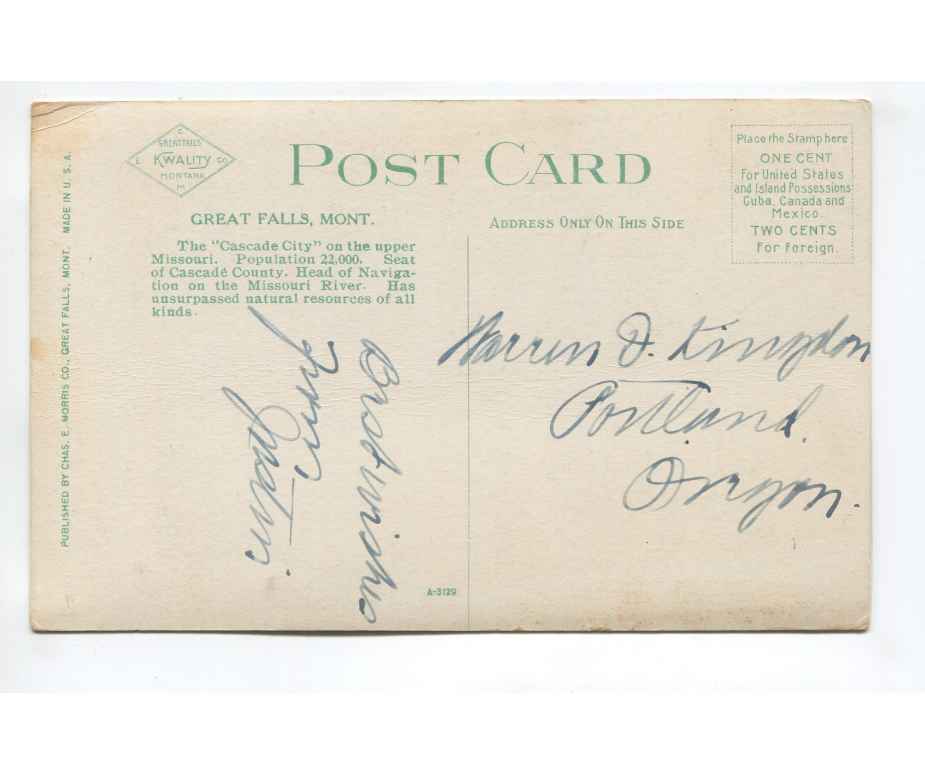 C
GREAT FALLS
E KWALITY CO.
MONTANA
M
POST CARD
Place the Stamp here
ONE CENT
For United States
and Island Possessions
Cuba, Canada and
Mexico.
TWO CENTS
For Foreign.
GREAT FALLS, MONT.
ADDRESS ONLY ON THIS SIDE
The "Cascade City" on the upper
Missouri. Population 22,000. Seat
of Cascade County. Head of Naviga-
tion on the Missouri River. Has
unsurpassed natural resources of all
kinds.
PUBLISHED BY CHAS. E. MORRIS CO., GREAT FALLS, MONT. MADE IN U. S. A.
Best wishes
from
Warren D. Kingdon
Portland.
Oregon.
A-3129